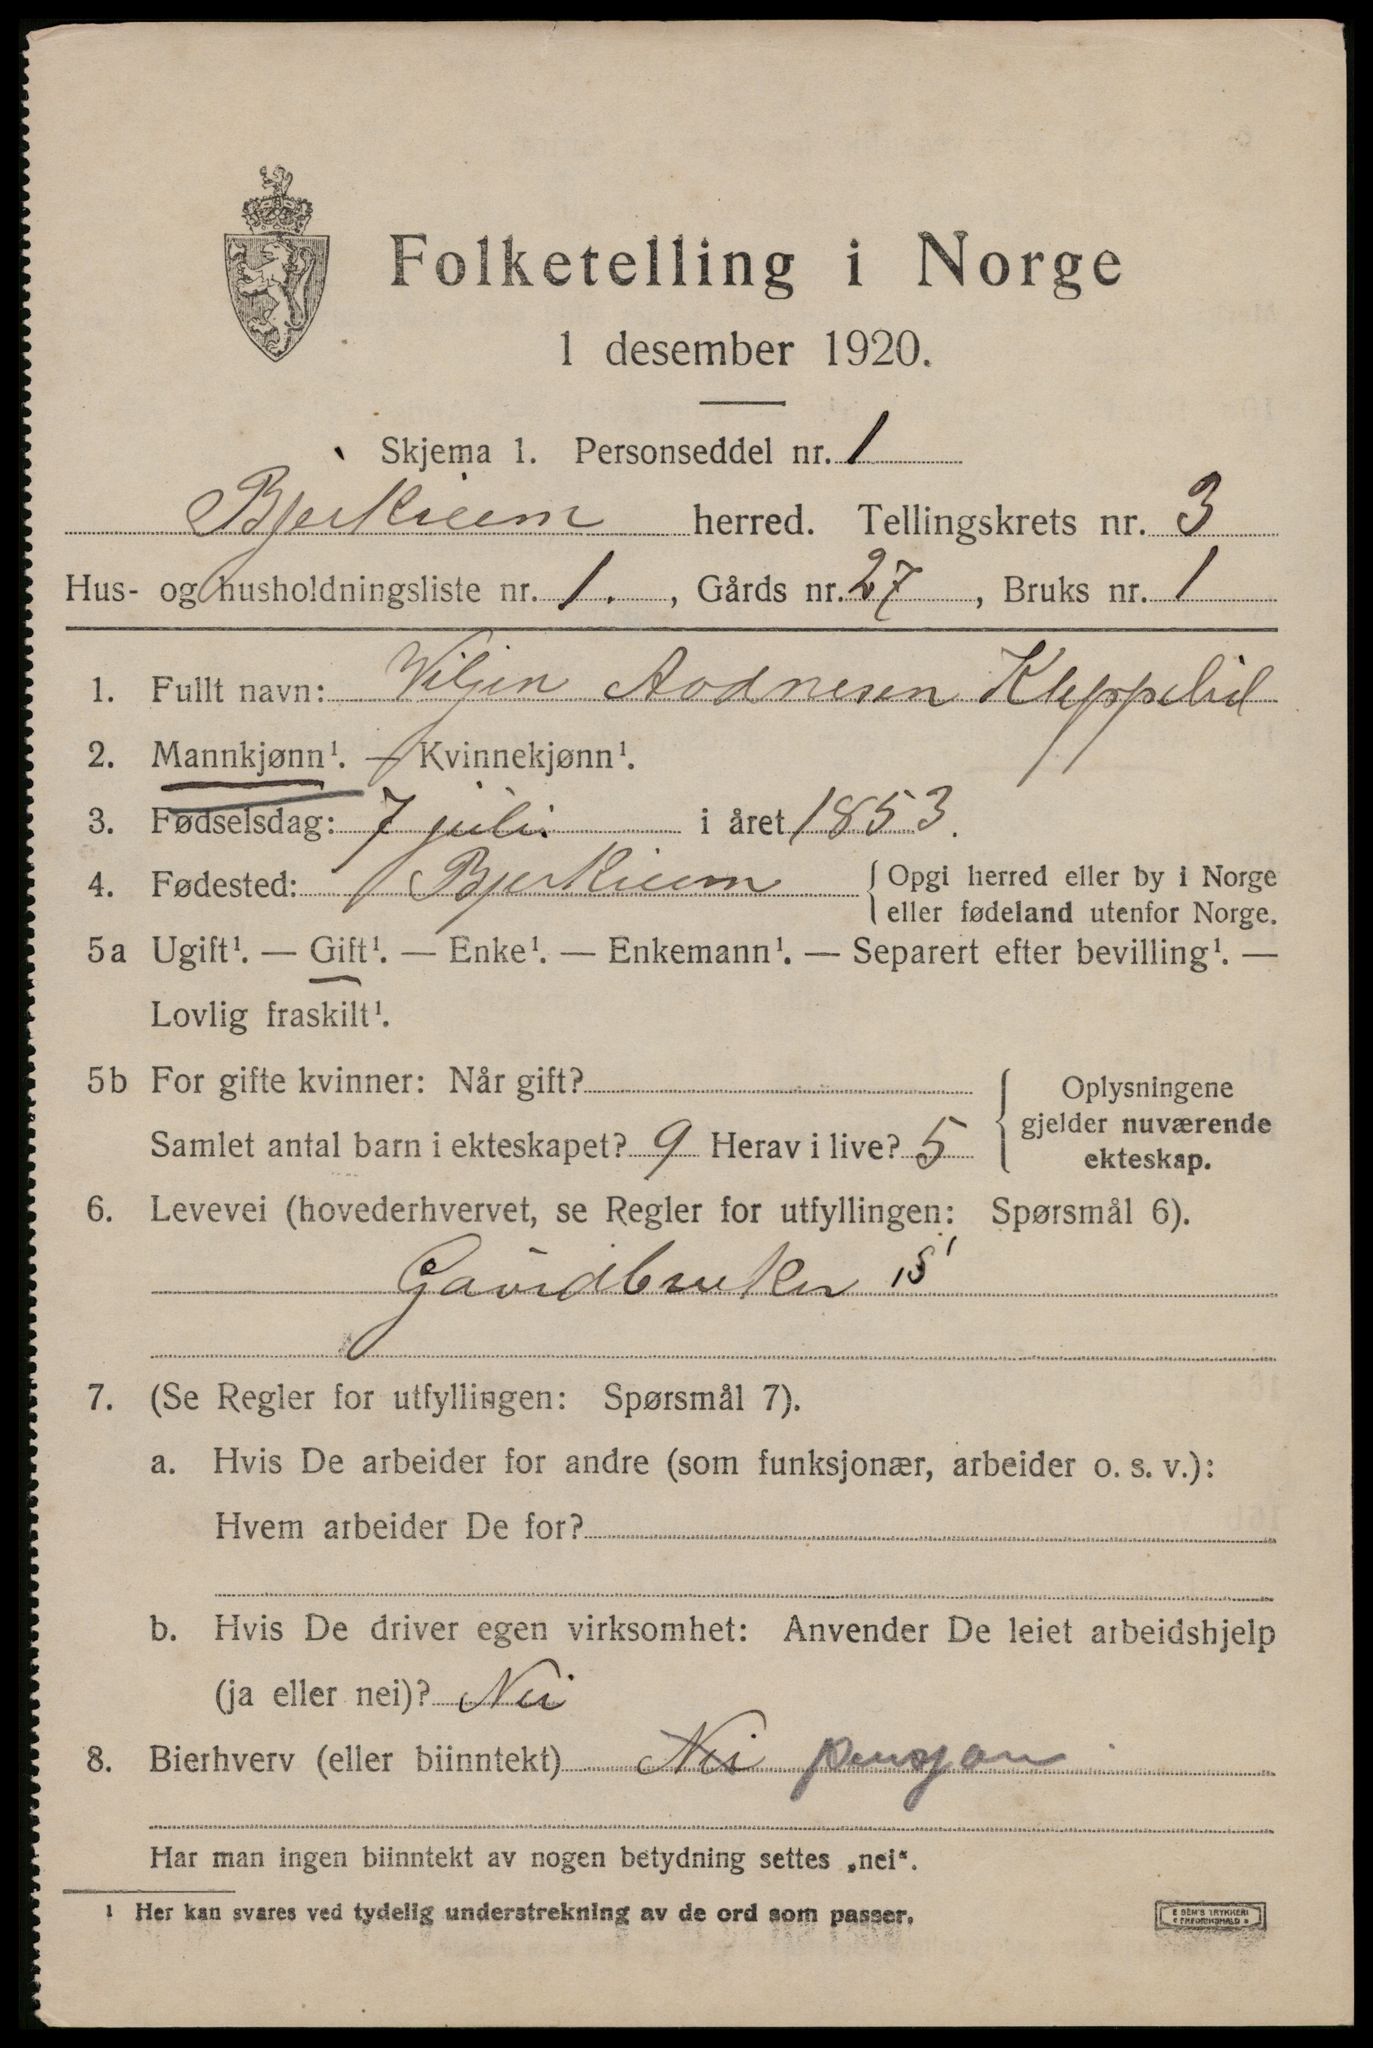 Folketelling i Norge
1 desember 1920.
Skjema 1. Personseddel nr. 1
Bjerkreim herred. Tellingskrets nr. 3
Hus- og husholdningsliste nr. 1. , Gårds nr. 27 , Bruks nr. 1
1. Fullt navn: Viljen Aodnesen Kleppelid
2. Mannkjønn¹. — Kvinnekjønn¹.
3. Fødselsdag: 7 juli. i året 1853.
4. Fødested: Bjerkreim { Opgi herred eller by i Norge
eller fødeland utenfor Norge.
5a Ugift¹. — Gift¹. — Enke¹. — Enkemann¹. — Separert efter bevilling¹. —
Lovlig fraskilt¹.
5b For gifte kvinner: Når gift?
Samlet antal barn i ekteskapet? 9 Herav i live? 5
{ Oplysningene
gjelder nuværende
ekteskap.
6. Levevei (hovederhvervet, se Regler for utfyllingen: Spørsmål 6).
Gaardbruker S
7. (Se Regler for utfyllingen: Spørsmål 7).
a. Hvis De arbeider for andre (som funksjonær, arbeider o. s. v.):
Hvem arbeider De for?
b. Hvis De driver egen virksomhet: Anvender De leiet arbeidshjelp
(ja eller nei)? Nei
8. Bierhverv (eller biinntekt) Nei pensjon
Har man ingen biinntekt av nogen betydning settes „nei“.
1 Her kan svares ved tydelig understrekning av de ord som passer.
E SEM'S TRYKKERI
FREDRIKSHALD